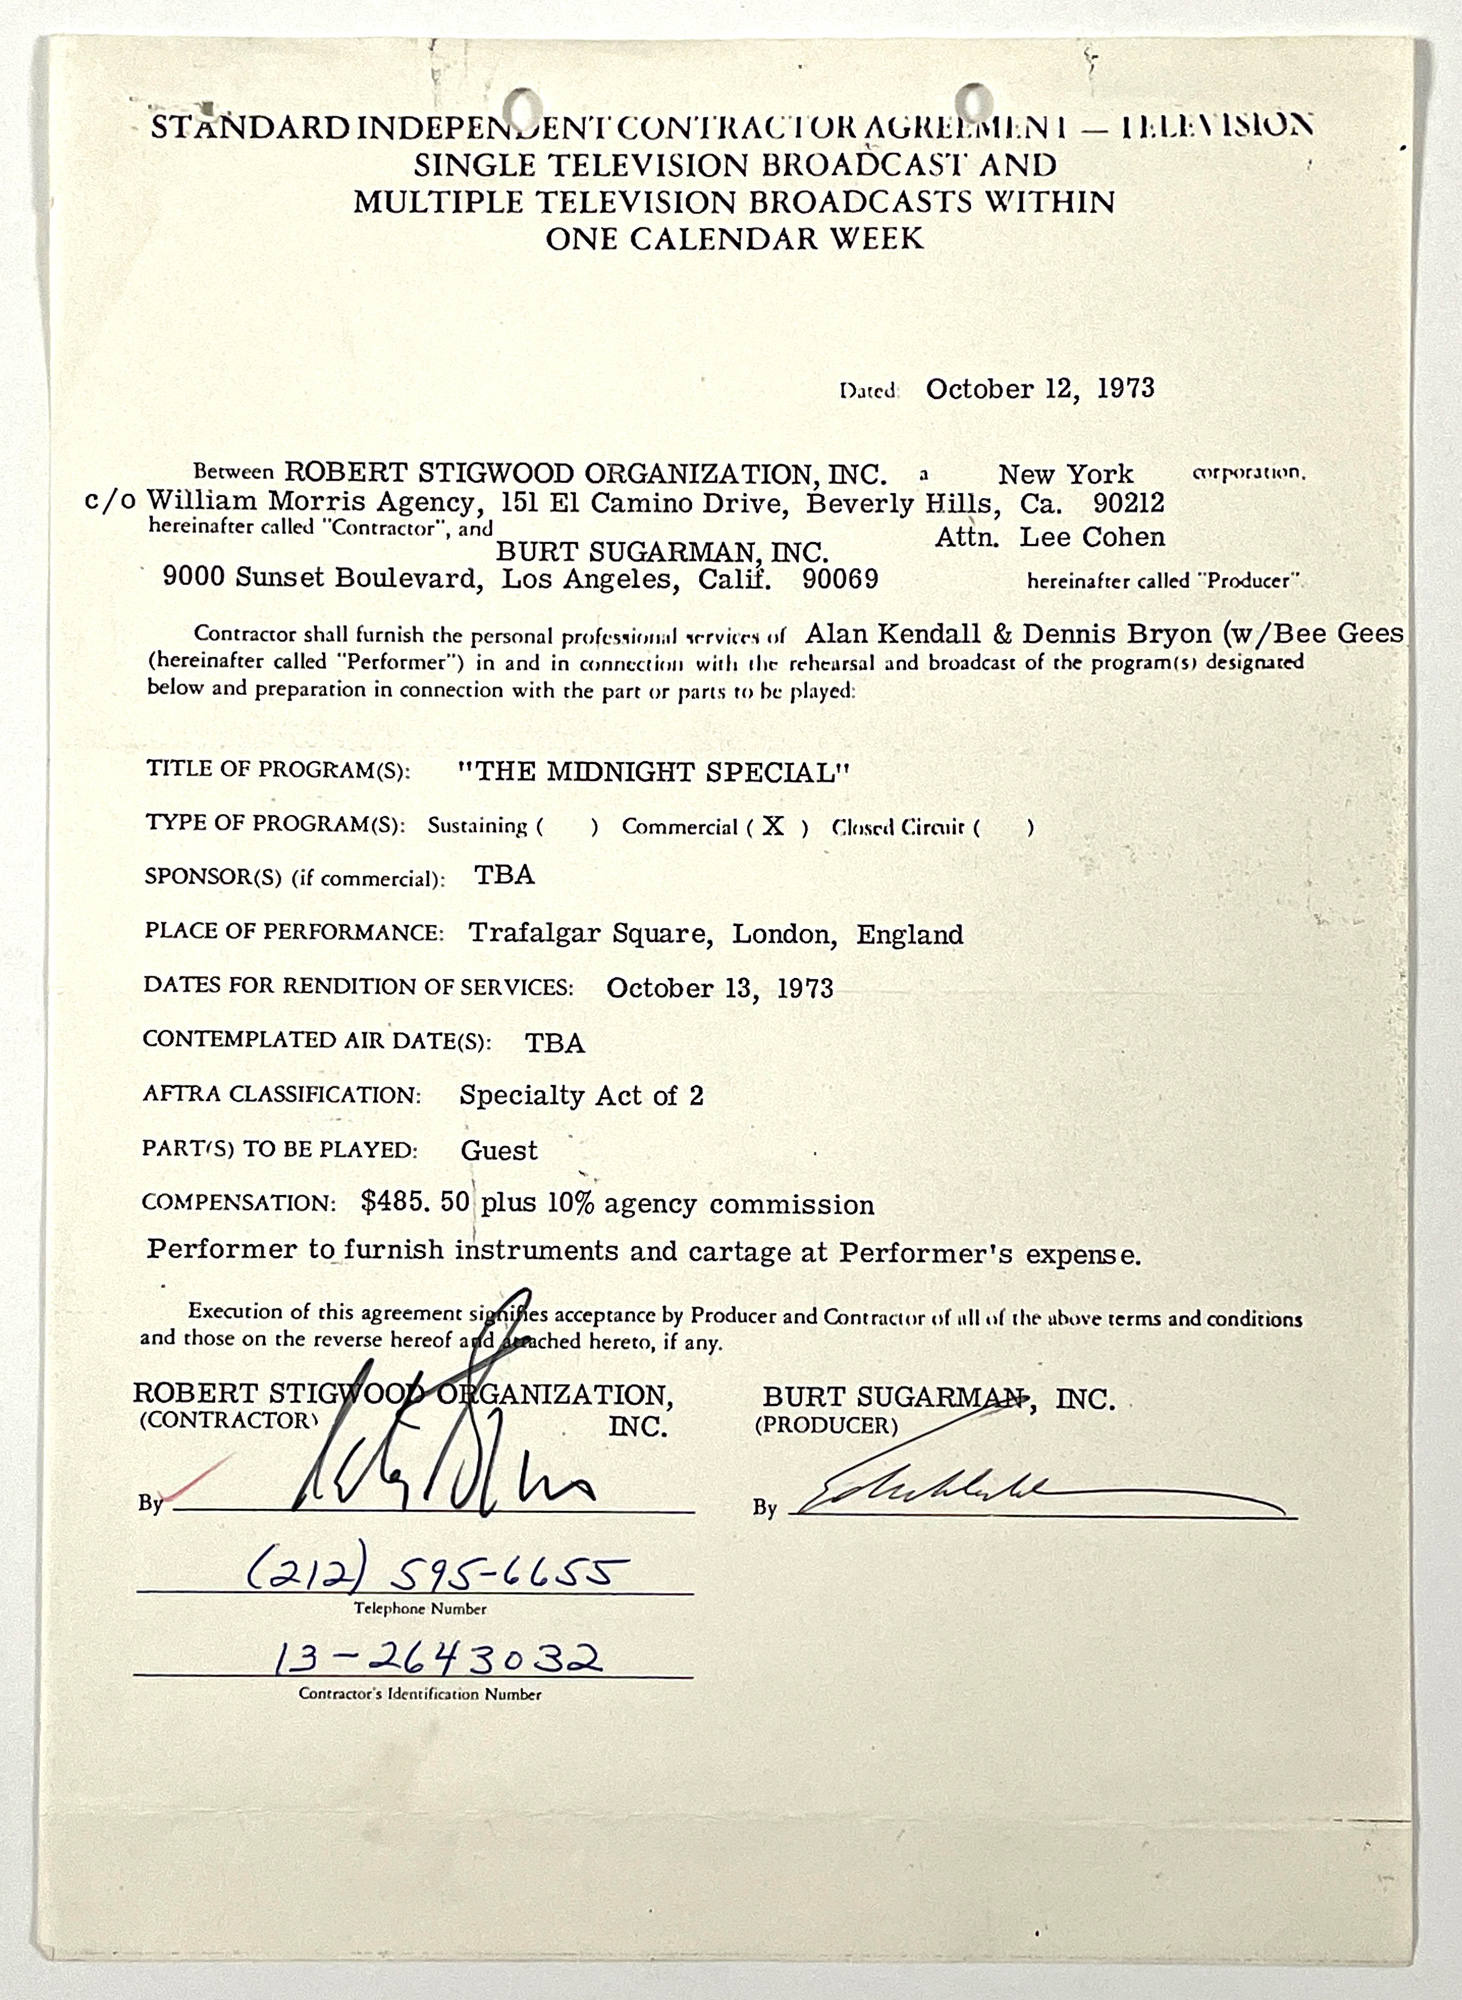 STANDARD INDEPENDENT CONTRACTOR AGREEMENT — TELEVISION
SINGLE TELEVISION BROADCAST AND
MULTIPLE TELEVISION BROADCASTS WITHIN
ONE CALENDAR WEEK
Dated: October 12, 1973
Between ROBERT STIGWOOD ORGANIZATION, INC. a New York corporation,
c/o William Morris Agency, 151 El Camino Drive, Beverly Hills, Ca. 90212
hereinafter called "Contractor", and Attn. Lee Cohen
BURT SUGARMAN, INC.
9000 Sunset Boulevard, Los Angeles, Calif. 90069 hereinafter called "Producer".
Contractor shall furnish the personal professional services of Alan Kendall & Dennis Bryon (w/Bee Gees
(hereinafter called "Performer") in and in connection with the rehearsal and broadcast of the program(s) designated
below and preparation in connection with the part or parts to be played:
TITLE OF PROGRAM(S): "THE MIDNIGHT SPECIAL"
TYPE OF PROGRAM(S): Sustaining ( ) Commercial ( X ) Closed Circuit ( )
SPONSOR(S) (if commercial): TBA
PLACE OF PERFORMANCE: Trafalgar Square, London, England
DATES FOR RENDITION OF SERVICES: October 13, 1973
CONTEMPLATED AIR DATE(S): TBA
AFTRA CLASSIFICATION: Specialty Act of 2
PART(S) TO BE PLAYED: Guest
COMPENSATION: $485.50 plus 10% agency commission
Performer to furnish instruments and cartage at Performer's expense.
Execution of this agreement signifies acceptance by Producer and Contractor of all of the above terms and conditions
and those on the reverse hereof and attached hereto, if any.
ROBERT STIGWOOD ORGANIZATION, BURT SUGARMAN, INC.
(CONTRACTOR) INC. (PRODUCER)
By By
(212) 595-6655
Telephone Number
13-2643032
Contractor's Identification Number